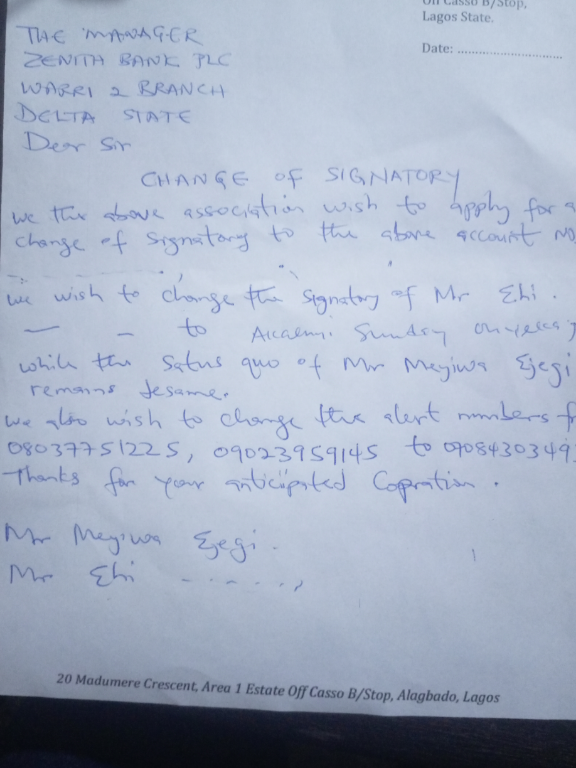 Off Casso B/Stop,
Lagos State.
Date: ................................
THE MANAGER
ZENITH BANK PLC
WARRI 2 BRANCH
DELTA STATE
Dear Sir
CHANGE OF SIGNATORY
we the above association wish to apply for a
change of signatory to the above account No.
we wish to change the signatory of Mr Ehi.
— — to Sunday
while the Satus quo of Mr Meyiwa Ejegi
remains tesame.
we also wish to change the alert numbers f
08037751225, 09023959145 to 0908430349
Thanks for your anticipated Copration.
Mr Meyiwa Ejegi.
Mr Ehi ......,
20 Madumere Crescent, Area 1 Estate Off Casso B/Stop, Alagbado, Lagos